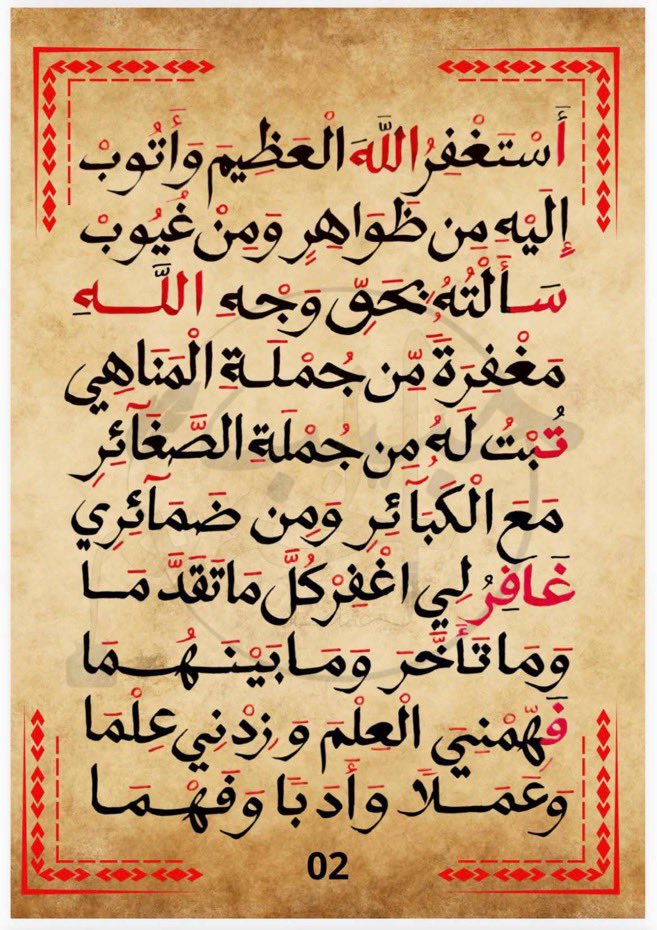 أَسْتَغْفِرُ اللَّهَ الْعَظِيمَ وَأَتُوبْ
إِلَيْهِ مِن ظَوَاهِرٍ وَمِنْ غُيُوبْ
سَأَلْتُهُ بِحَقِّ وَجْهِ اللَّهِ
مَغْفِرَةً مِّن جُمْلَةِ الْمَنَاهِي
تُبْتُ لَهُ مِن جُمْلَةِ الصَّغَآئِرِ
مَعَ الْكَبَآئِرِ وَمِن ضَمَآئِرِي
غَافِرُ لِي اغْفِرْ كُلَّ مَا تَقَدَّ مَا
وَمَا تَأَخَّرَ وَمَا بَيْنَهُمَا
فَهِّمْنِيَ الْعِلْمَ وَزِدْنِي عِلْمَا
وَعَمَلًا وَأَدَبًا وَفَهْمَا
02